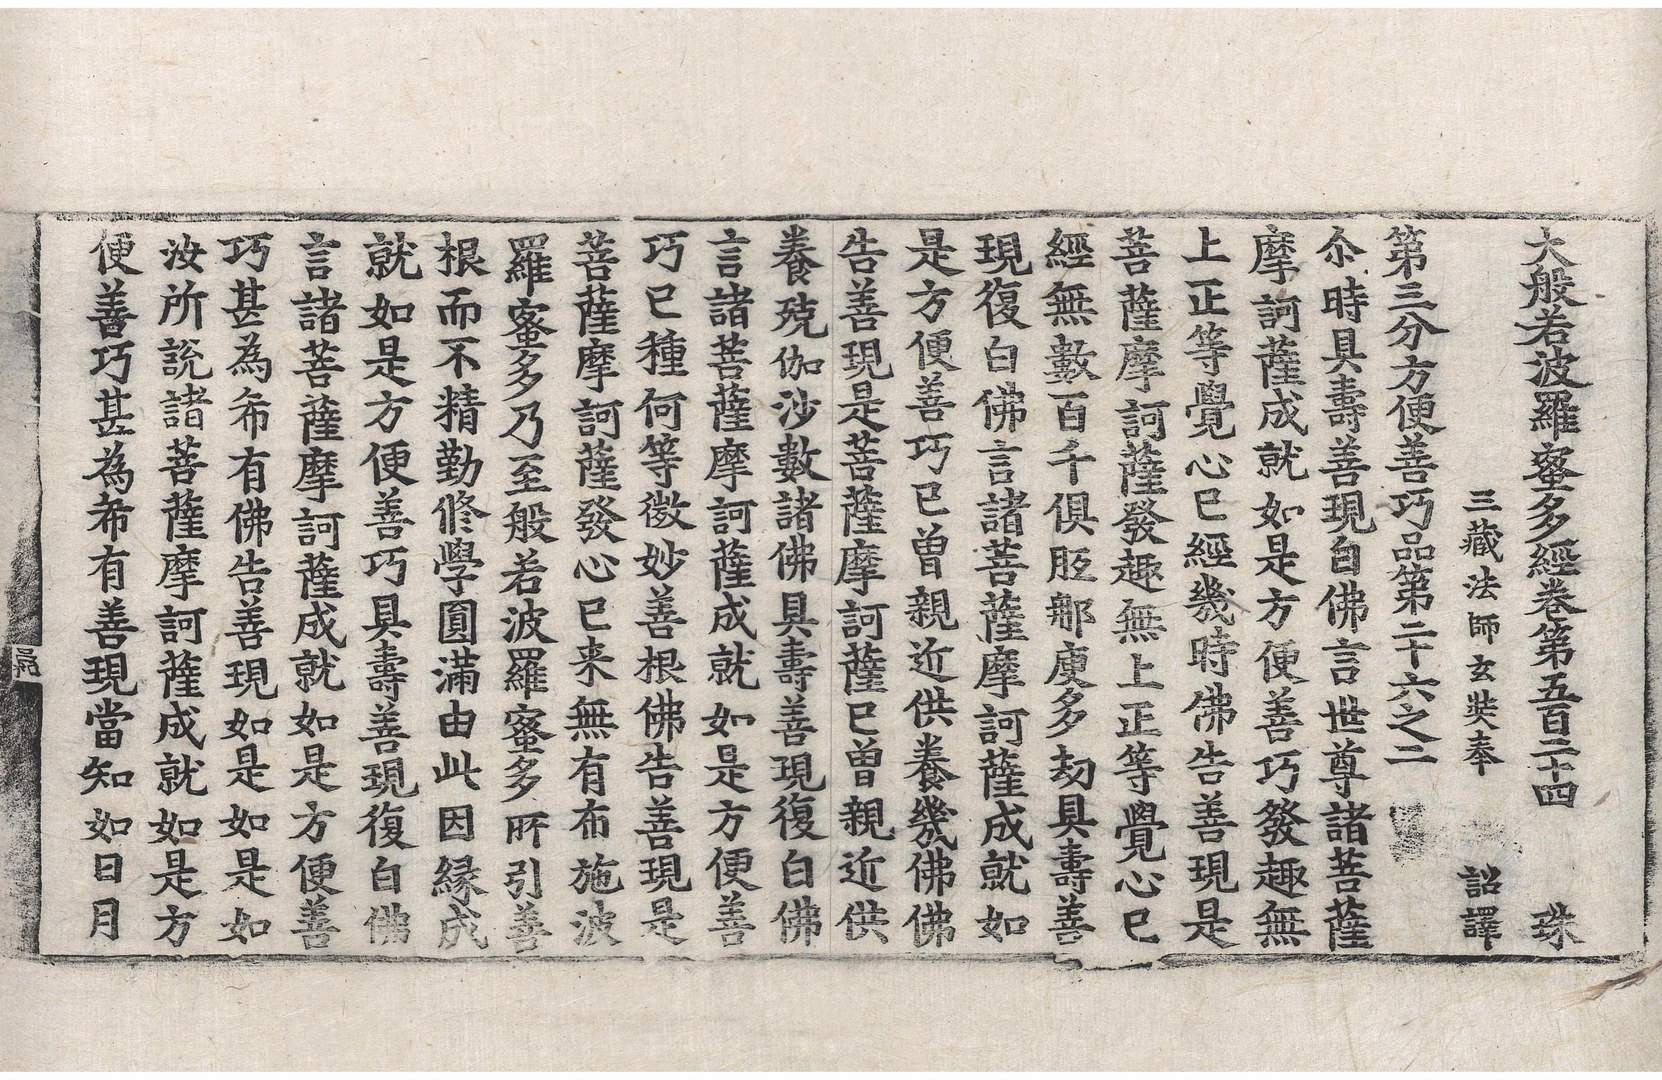 大般若波羅蜜多經卷第五百二十四 珠
三藏法師玄奘奉 詔譯
第三分方便善巧品第二十六之二
尒時具壽善現白佛言世尊諸菩薩
摩訶薩成就如是方便善巧發趣無
上正等覺心已經幾時佛告善現是
菩薩摩訶薩發趣無上正等覺心已
經無數百千俱胝那庾多劫具壽善
現復白佛言諸菩薩摩訶薩成就如
是方便善巧已曾親近供養幾佛佛
告善現是菩薩摩訶薩已曾親近供
養殑伽沙數諸佛具壽善現復白佛
言諸菩薩摩訶薩成就如是方便善
巧已種何等微妙善根佛告善現是
菩薩摩訶薩發心已来無有布施波
羅蜜多乃至般若波羅蜜多所引善
根而不精勤修學圓滿由此因縁成
就如是方便善巧具壽善現復白佛
言諸菩薩摩訶薩成就如是方便善
巧甚為希有佛告善現如是如是如
汝所說諸菩薩摩訶薩成就如是方
便善巧甚為希有善現當知如日月